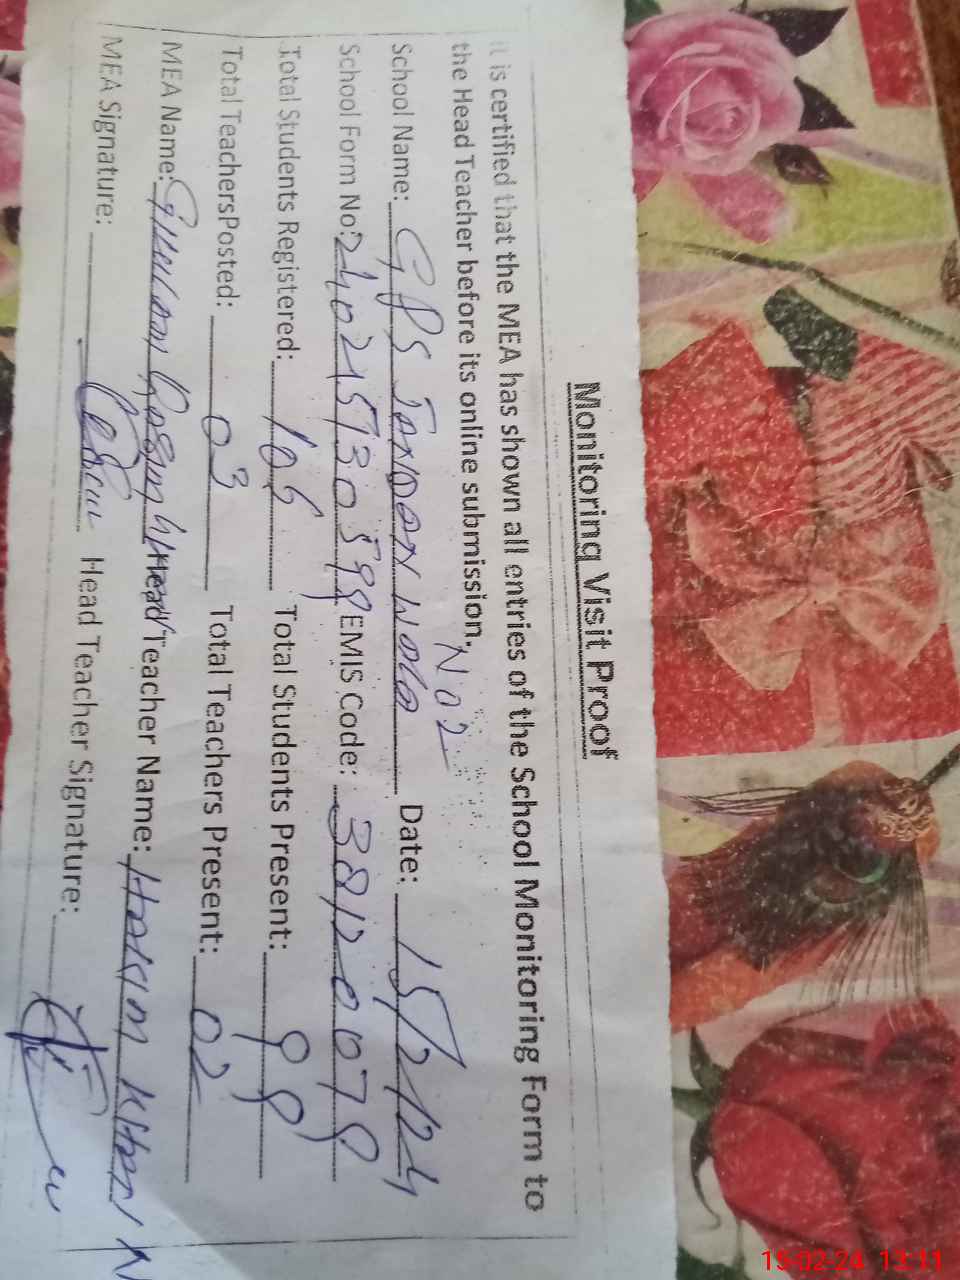 Monitoring Visit Proof
it is certified that the MEA has shown all entries of the School Monitoring Form to
the Head Teacher before its online submission. No 2
School Name: GPS Date: 15/2/24
School Form No: EMIS Code:
Total Students Registered: 106 Total Students Present: 99
Total TeachersPosted: 03 Total Teachers Present: 02
MEA Name: Head Teacher Name: Hakim Khan
MEA Signature: Head Teacher Signature:
15-02-24 13:11